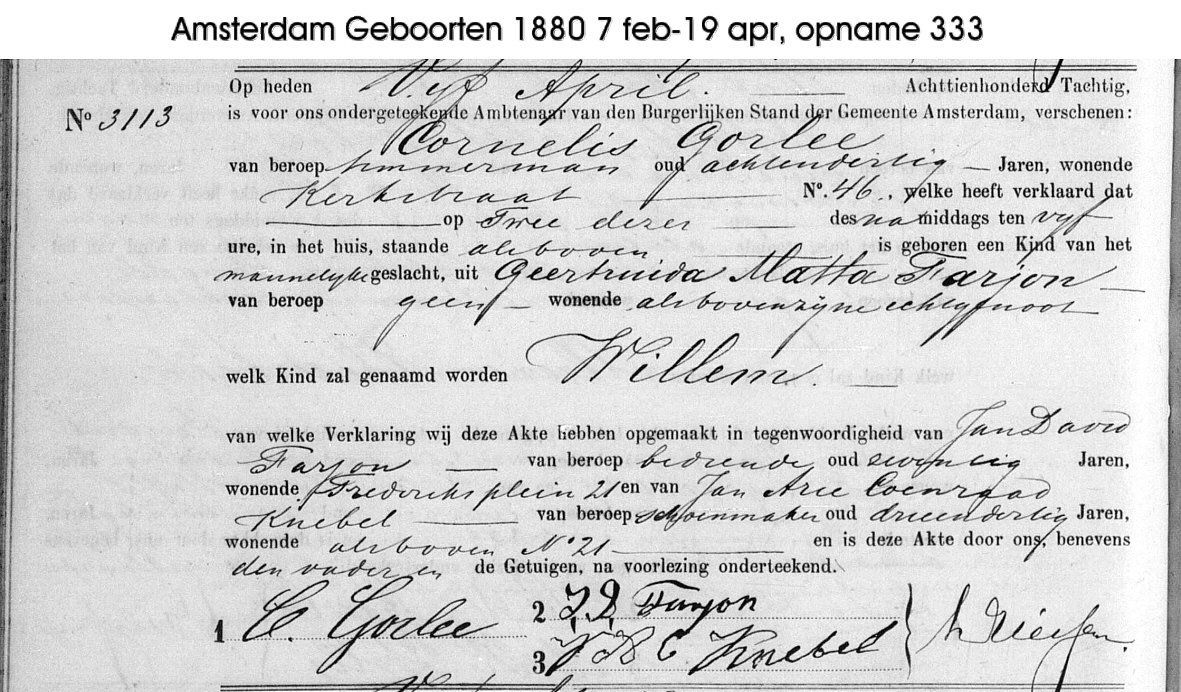 Amsterdam Geboorten 1880 7 feb-19 apr, opname 333
Op heden Vijf April. Achttienhonderd Tachtig,
No 3113 is voor ons ondergeteekende Ambtenaar van den Burgerlijken Stand der Gemeente Amsterdam, verschenen:
Cornelis Gorlee
van beroep timmerman oud achtendertig Jaren, wonende
Kerkstraat No. 46, welke heeft verklaard dat
op Twee dezer des na middags ten vijf
ure, in het huis, staande alsboven is geboren een Kind van het
mannelijke geslacht, uit Geertruida Matta Farjon
van beroep geen wonende alsboven zijne echtgenoot
welk Kind zal genaamd worden Willem
van welke Verklaring wij deze Akte hebben opgemaakt in tegenwoordigheid van Jan David
Farjon van beroep bediende oud zeventig Jaren,
wonende Frederiksplein 21 en van Jan Arie Coenraad
Knebel van beroep schoenmaker oud drieendertig Jaren,
wonende alsboven No 21 en is deze Akte door ons, benevens
den vader en de Getuigen, na voorlezing onderteekend.
1 C. Gorlee 2 J. D. Farjon
3 J A C Knebel